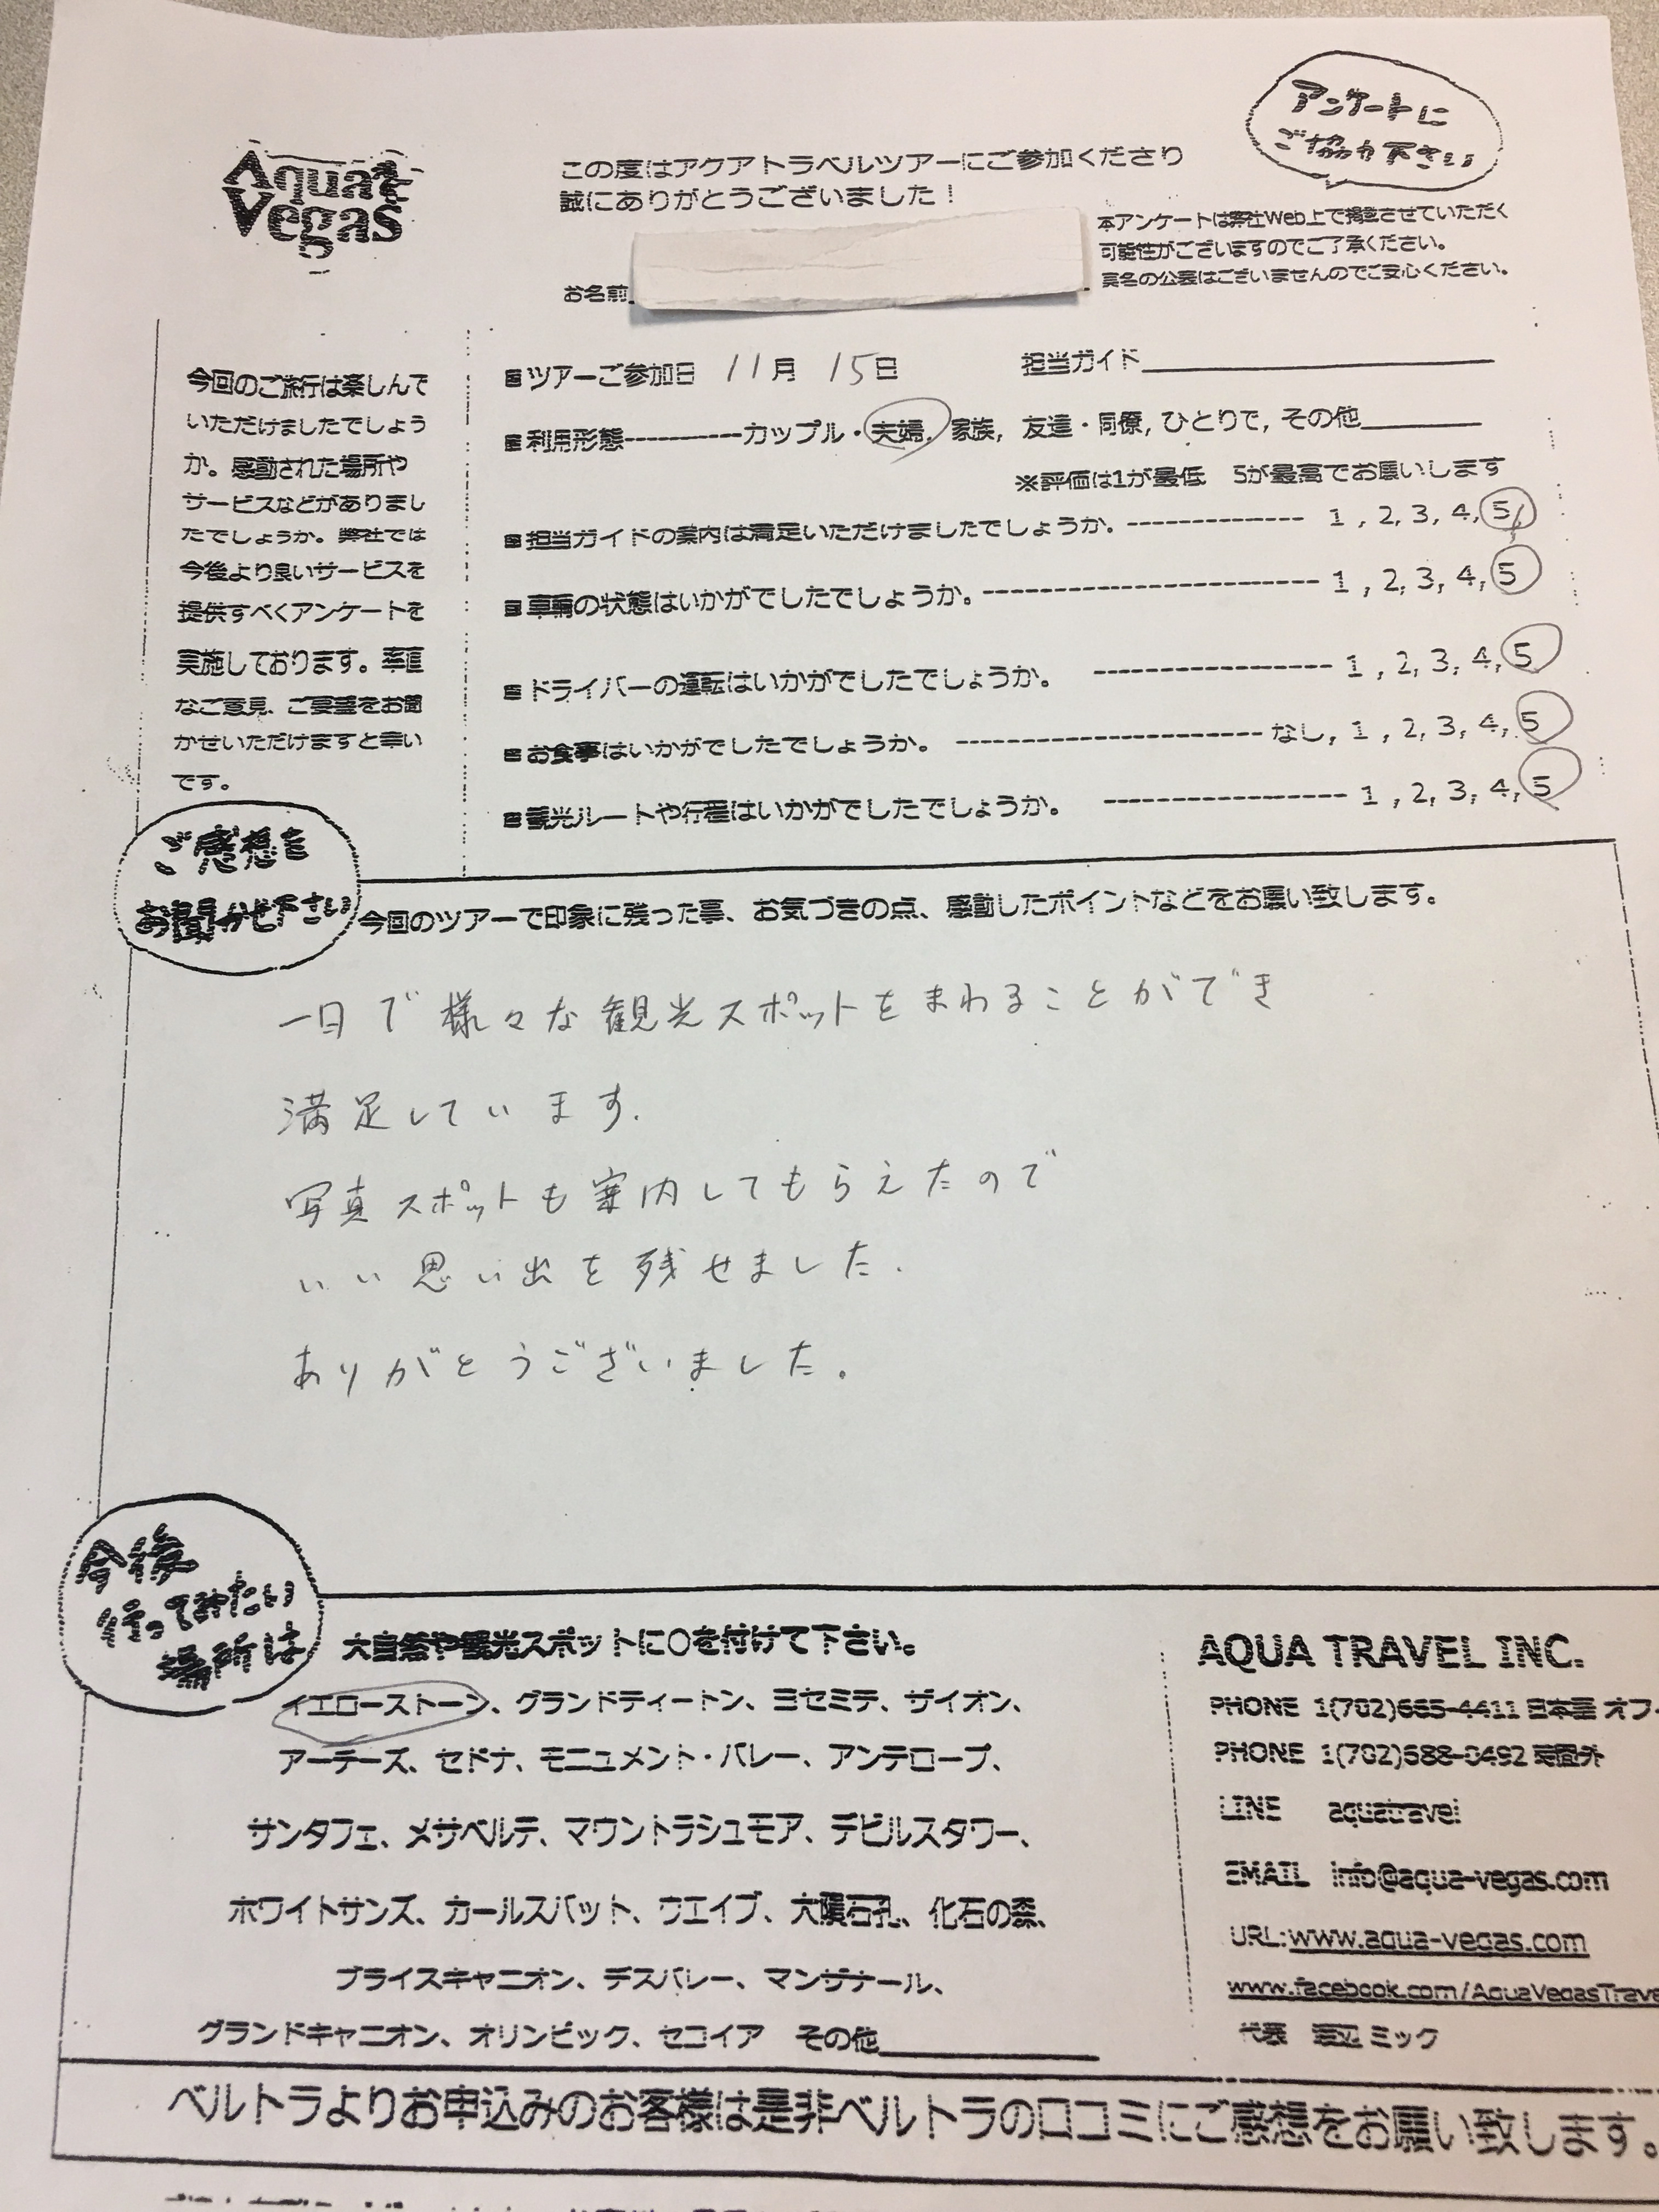 アンケートに
ご協力下さい
Aqua
Vegas
この度はアクアトラベルツアーにご参加くださり
誠にありがとうございました！
本アンケートは弊社Web上で掲載させていただく
可能性がございますのでご了承ください。
実名の公表はございませんのでご安心ください。
お名前
今回のご旅行は楽しんで
いただけましたでしょう
か。感動された場所や
サービスなどがありまし
たでしょうか。弊社では
今後より良いサービスを
提供すべくアンケートを
実施しております。率直
なご意見、ご要望をお聞
かせいただけますと幸い
です。
ツアーご参加日 11月 15日 担当ガイド
利用形態----------カップル・夫婦, 家族, 友達・同僚, ひとりで, その他
※評価は1が最低 5が最高でお願いします
担当ガイドの案内は満足いただけましたでしょうか。-------------- 1 , 2, 3, 4, 5
車輌の状態はいかがでしたでしょうか。--------------------------- 1 , 2, 3, 4, 5
ドライバーの運転はいかがでしたでしょうか。 ------------------- 1 , 2, 3, 4, 5
お食事はいかがでしたでしょうか。 ----------------------- なし, 1 , 2, 3, 4, 5
観光ルートや行程はいかがでしたでしょうか。 ------------------- 1 , 2, 3, 4, 5
ご感想を
お聞かせ下さい
今回のツアーで印象に残った事、お気づきの点、感動したポイントなどをお願い致します。
一日で様々な観光スポットをまわることができ
満足しています.
写真スポットも案内してもらえたので
いい思い出を残せました.
ありがとうございました。
今後
行ってみたい
場所は
大自然や観光スポットに○を付けて下さい。
イエローストーン、グランドティートン、ヨセミテ、ザイオン、
アーチーズ、セドナ、モニュメント・バレー、アンテロープ、
サンタフェ、メサベルデ、マウントラシュモア、デビルスタワー、
ホワイトサンズ、カールスバット、ウエイブ、大隕石孔、化石の森、
ブライスキャニオン、デスバレー、マンザナール、
グランドキャニオン、オリンピック、セコイア その他
AQUA TRAVEL INC.
PHONE 1(702)665-4411 日本語 オフィ
PHONE 1(702)688-0492 英国外
LINE aquatravel
EMAIL info@aqua-vegas.com
URL:www.aqua-vegas.com
www.facebook.com/AquaVegasTrave
代表 渡辺 ミック
ベルトラよりお申込みのお客様は是非ベルトラの口コミにご感想をお願い致します。